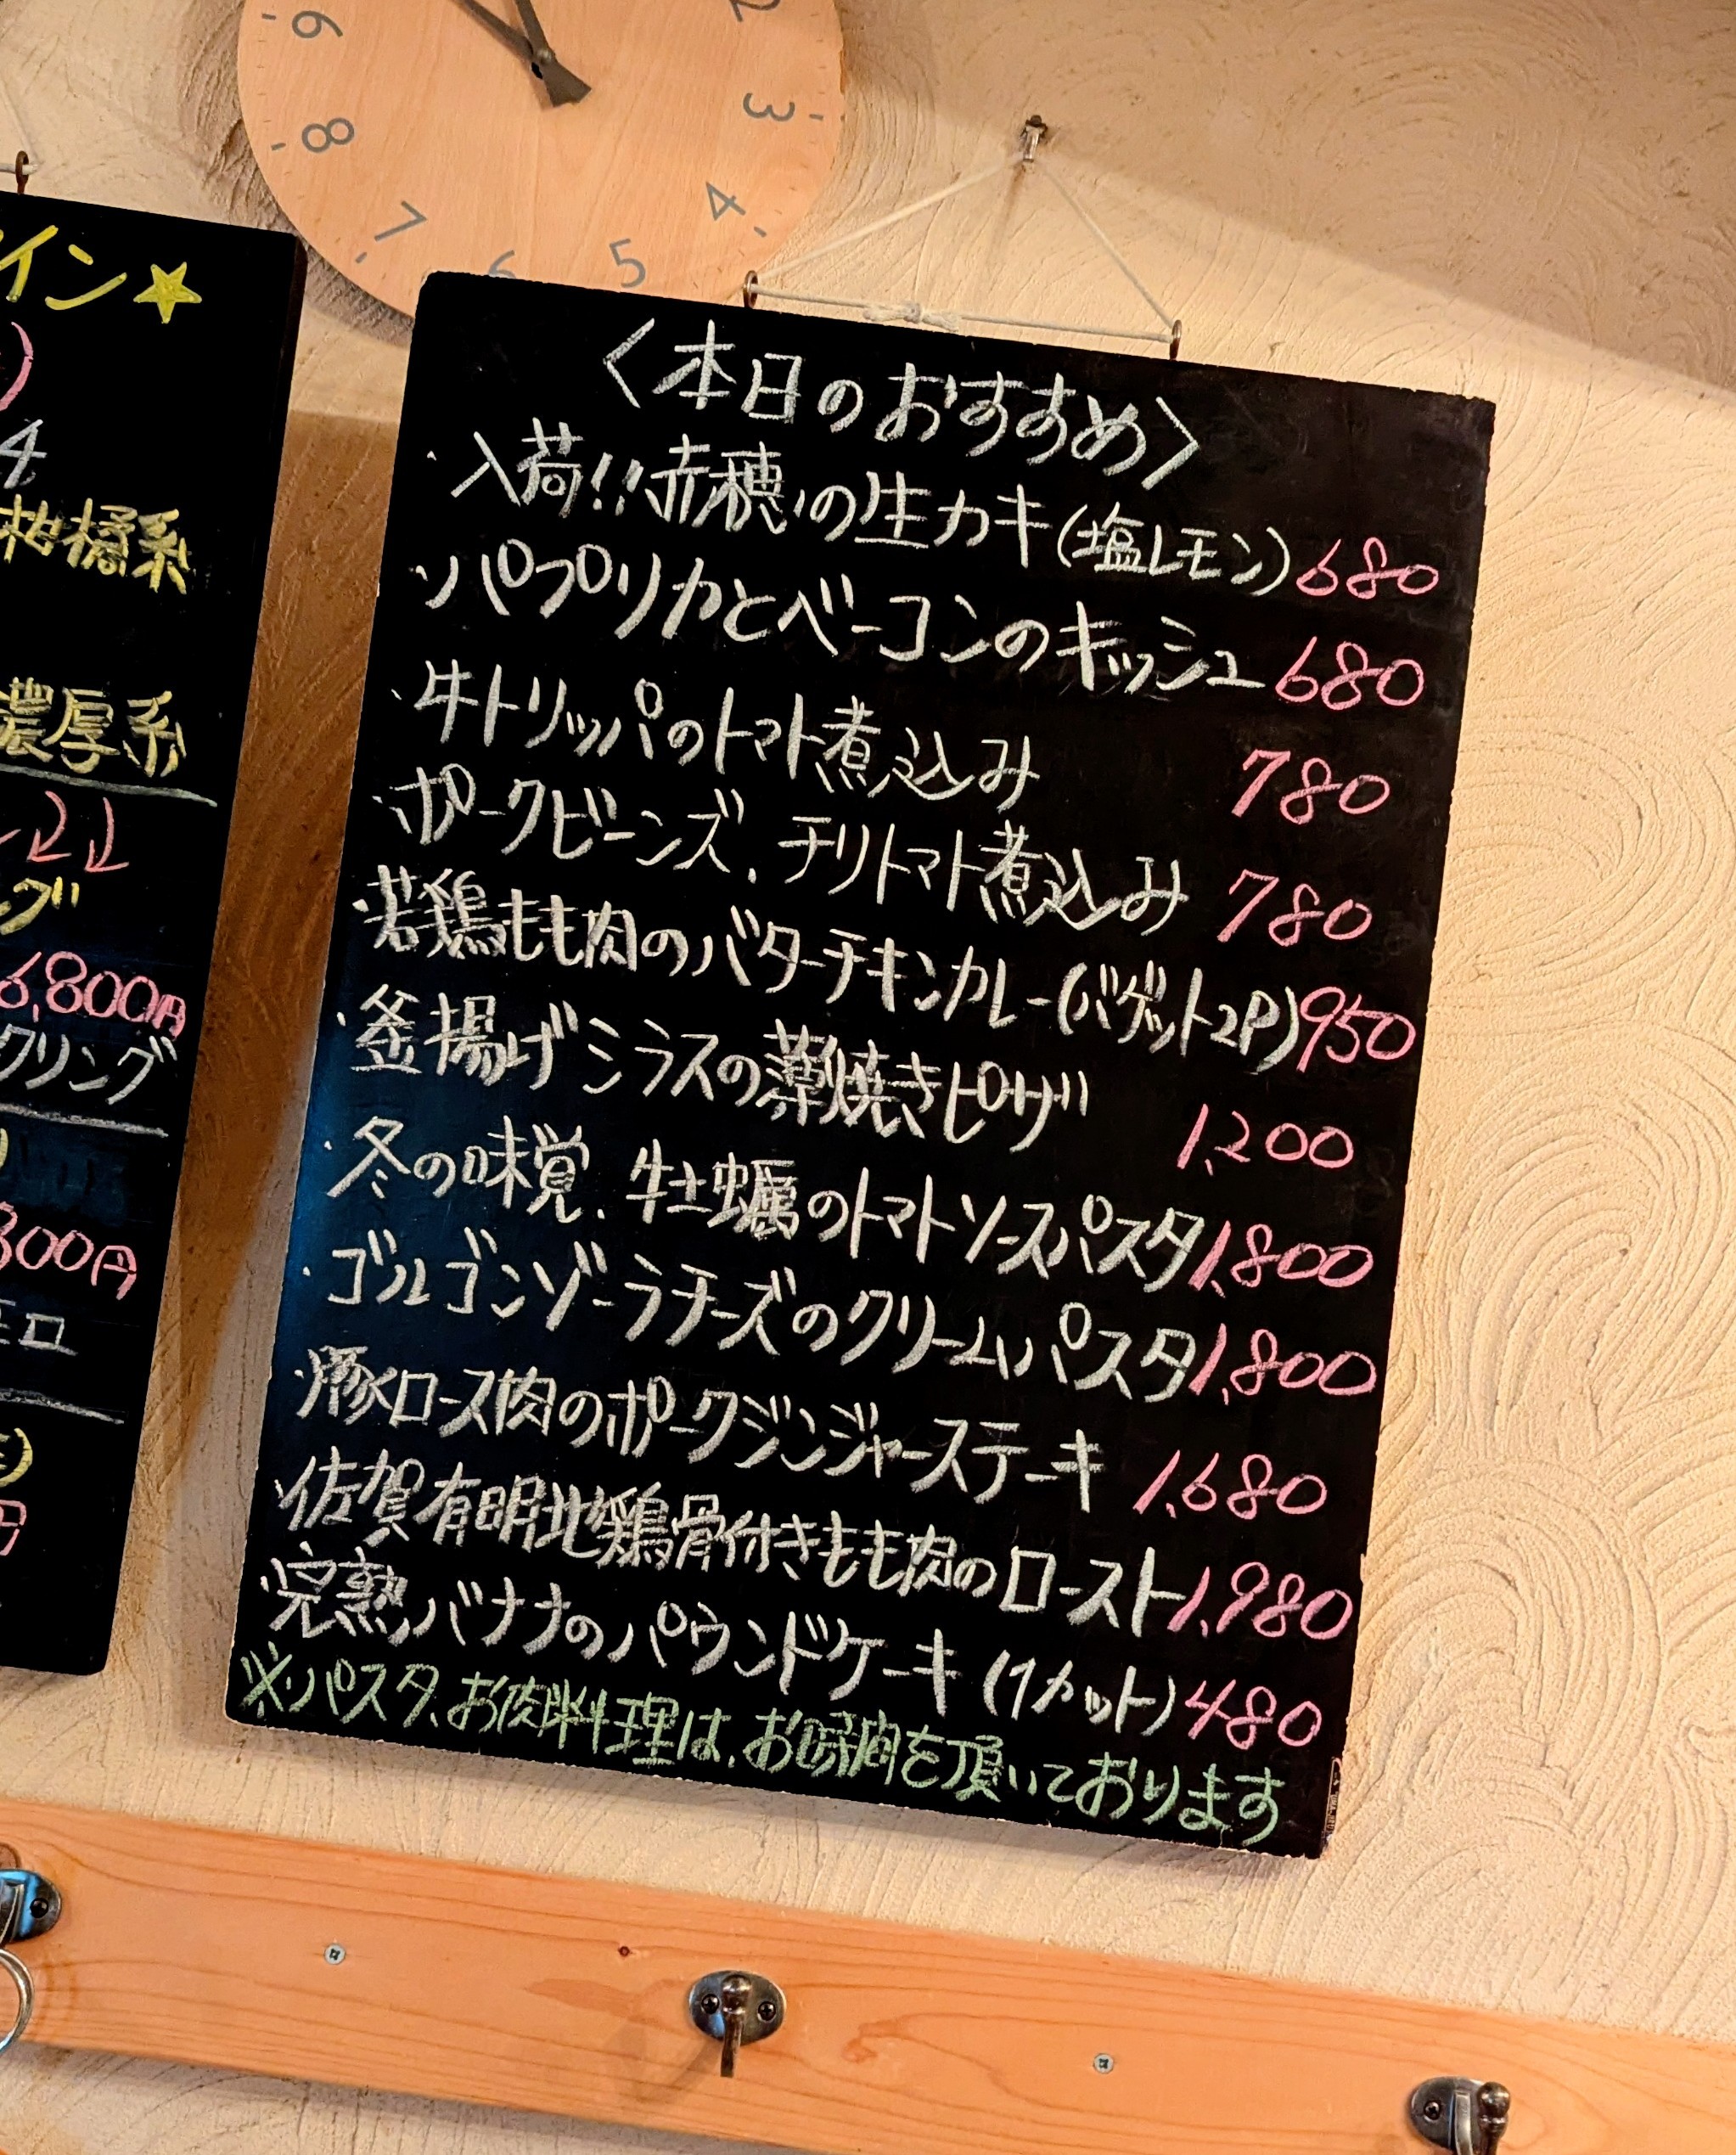 イン☆
4
柑橘系
濃厚系
グ
6,800円
クリング
800円
モロ
円
9
8
7
6
5
4
3
2
〈本日のおすすめ〉
・入荷!!赤穂の生カキ(塩レモン) 680
・パプリカとベーコンのキッシュ 680
・牛トリッパのトマト煮込み 780
・ポークビーンズ、チリトマト煮込み 780
・若鶏もも肉のバターチキンカレー(バゲット2P) 950
・釜揚げシラスの薬焼きピザ 1,200
・冬の味覚、牡蠣のトマトソースパスタ 1,800
・ゴルゴンゾーラチーズのクリームパスタ 1,800
・豚ロース肉のポークジンジャーステーキ 1,680
・佐賀有明地鶏骨付きもも肉のロースト 1,980
・完熟バナナのパウンドケーキ(1カット) 480
※パスタ、お肉料理は、お時間を頂いております